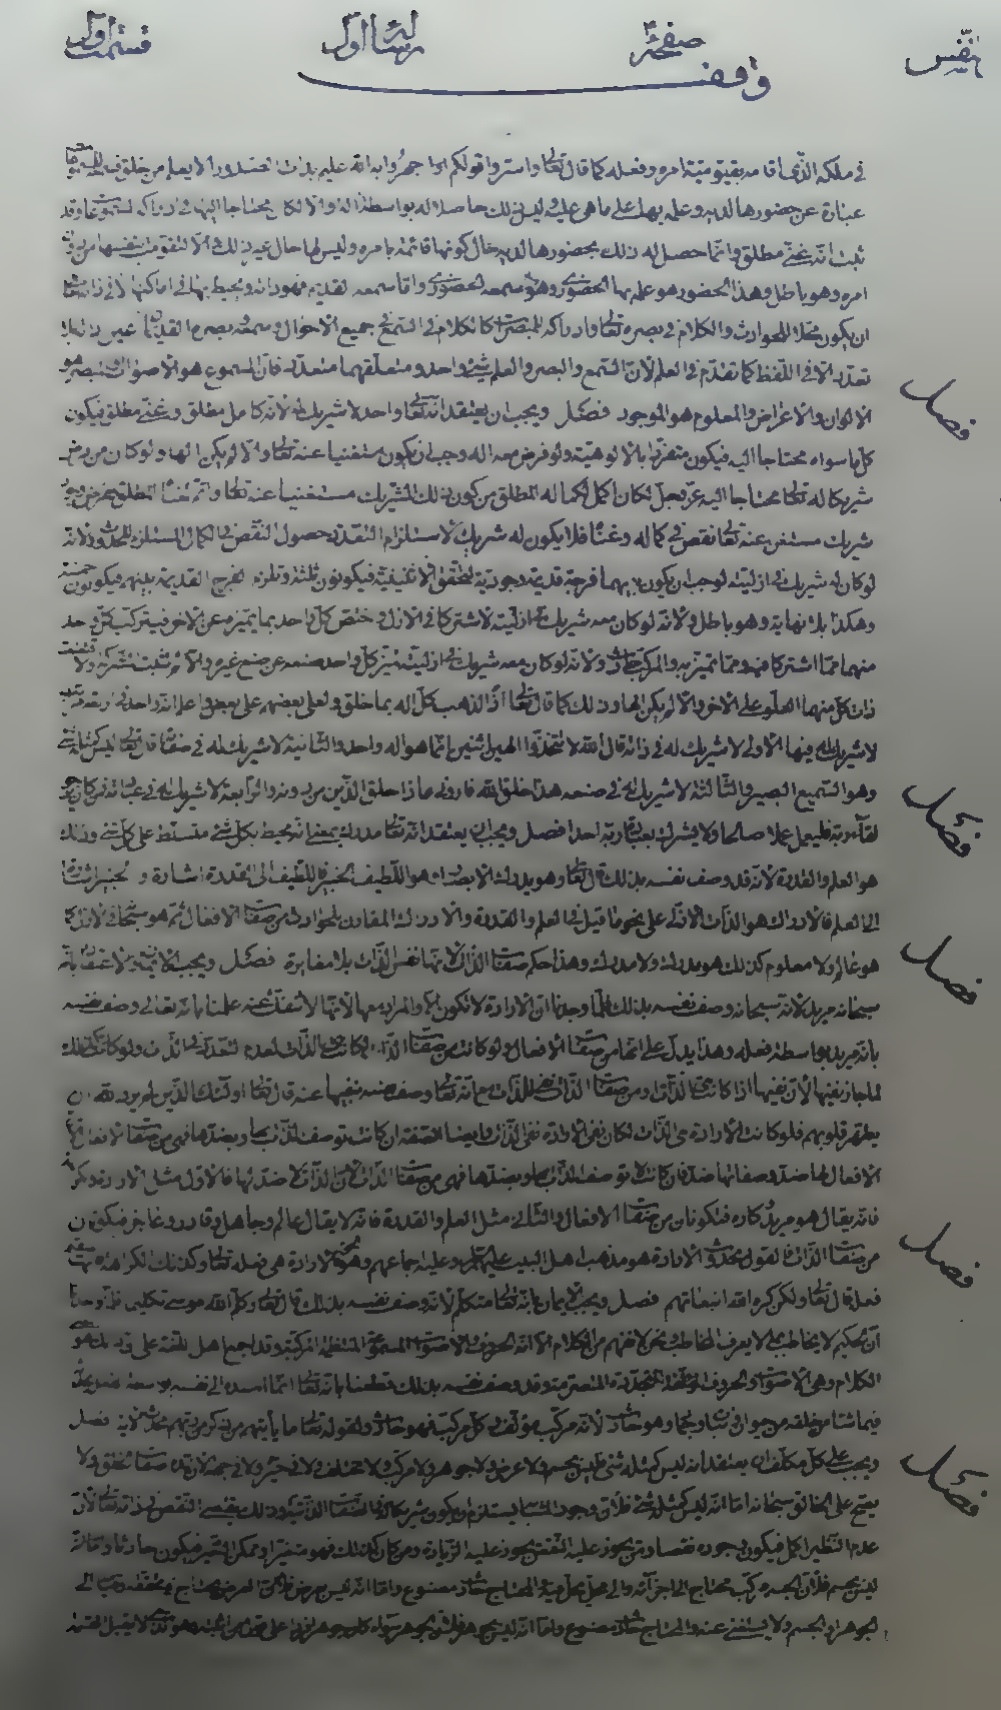 قسمت اول رسالة اول صفحة نفيس
وقف
في ملكه الذي اقامه بقيوميته امره وفعله كما قال تعالى واسروا قولكم او اجهروا به انه عليم بذات الصدور الا يعلم من خلق
عبارة عن حضورها لديه وعلمه بها على ما هي عليه وليس ذلك حاصلا له بواسطة والا لكان محتاجا اليها في ادراكه
ثبت انه غني مطلق وانما حصل له ذلك بحضورها لديه حال كونها قائمة بامره وليس لها حال غير ذلك والا لتقومت بنفسها من دون
امره وهو باطل وهذا الحضور هو علمه بها الحضوري وهو سمعه الحضوري واما سمعه القديم فهو ذاته ويحيط بها في اماكنها لا في ذاته
ان يكون محلا للحوادث والكلام في بصره تعالى وادراكه للمبصرات كالكلام في السمع في جميع الاحوال وسمعه وبصره القديمان عين ذاته بلا
تعدد الا في اللفظ كما تقدم في العلم لان السمع والبصر والعلم شيء واحد ومتعلقهما متعدد فان المسموع هو الاصوات والمبصر هو
الالوان والاعراض والمعلوم هو الموجود فصل ويجب ان يعتقد انه تعالى واحد لا شريك له لانه كامل مطلق وغني مطلق فيكون
كل ما سواه محتاجا اليه فيكون متفردا بالالوهية ولو فرض معه اله وجب ان يكون مستغنيا عنه تعالى والا لم يكن الها ولو كان من فرض
شريكا له تعالى محتاجا اليه عز وجل لكان اكمل لكماله المطلق من كون ذلك الشريك مستغنيا عنه تعالى واتم لغناه المطلق ففرض وجود
شريك مستغن عنه تعالى نقص في كماله وغناه فلا يكون له شريك لاستلزام التعدد حصول النقص في الكمال المستلزم للحدوث ولانه
لو كان له شريك في ازليته لوجب ان يكون بينهما فرجة قديمة وجودية لتحقق الاثنينية فيكونون ثلثة وتلزم الفرج القديمة بينهم فيكونون خمسة
وهكذا بلا نهاية وهو باطل ولانه لو كان معه شريك في ازليته لاشتركا في الازل واختص كل واحد بما يتميز به عن الاخر فيتركب كل واحد
منهما مما اشتركا فيه ومما تميز به والمركب حادث ولانه لو كان معه شريك في ازليته ليتميز كل واحد صنعه عن صنع غيره والا لم تثبت شركته ولاقتضت
ذات كل منهما العلو على الاخر والا لم يكن الها وذلك كما قال تعالى اذا لذهب كل اله بما خلق ولعلى بعضهم على بعض واعلم انه واحد في اربعة مراتب
لا شريك له فيها الاولى لا شريك له في ذاته قال الله لا تتخذوا الهين اثنين انما هو اله واحد والثانية لا شريك له في صفاته قال تعالى ليس كمثله شيء
وهو السميع البصير والثالثة لا شريك له في صنعه هذا خلق الله فاروني ماذا خلق الذين من دونه والرابعة لا شريك له في عبادته فمن كان يرجو
لقآء ربه فليعمل عملا صالحا ولا يشرك بعبادة ربه احدا فصل ويجب ان يعتقد انه تعالى مدرك بمعنى انه محيط بكل شيء متسلط على كل شيء وذلك
هو العلم والقدرة لانه قد وصف نفسه بذلك قال تعالى وهو يدرك الابصار وهو اللطيف الخبير فاللطيف الى القدرة اشارة والخبير اشارة
الى العلم فالادراك هو الذات الازلي على نحو ما قيل في العلم والقدرة والادراك المقارن للحوادث من صفات الافعال ثم هو سبحانه في الازل كما
هو عالم ولا معلوم كذلك هو مدرك ولا مدرك وهذا حكم صفات الذات لانها نفس الذات بلا مغايرة فصل ويجب الاعتقاد بانه
سبحانه مريد لانه سبحانه وصف نفسه بذلك فلما وجدنا ان الارادة لا تكون الا والمراد معها لانها لا تنفك عنه علمنا بانه تعالى وصف نفسه
بانه مريد بواسطة فعله وهذا يدل على انها من صفات الافعال اذ لو كانت من صفات الذات لكانت هي الذات لعدم التعدد في الذات ولو كانت كذلك
لما جاز نفيها لان نفيها اذا كانت هي الذات ومن صفات الذات نفي للذات مع انه تعالى وصف نفسه بنفيها عنه قال تعالى اولئك الذين لم يرد الله ان
يطهر قلوبهم فلو كانت الارادة هي الذات لكان نفي الارادة نفي الذات وايضا الصفة ان كانت توصف الذات بها وبضدها فهي من صفات الافعال
الافعال لها ضد وصفاتها ضد وان كانت لا توصف الذات بها وبضدها فهي من صفات الذات لان الذات لا ضد لها فالاول مثل الارادة والكراهة
فانه يقال هو مريد وكاره فتكونان من صفات الافعال والثاني مثل العلم والقدرة فانه لا يقال عالم وجاهل وقادر وعاجز فيكون
من صفات الذات فالقول بحدوث الارادة هو مذهب اهل البيت عليهم السلام وعليه اجماعهم وهو الحق فالارادة هي فعله تعالى وكذلك الكراهة
فعله قال تعالى ولكن كره الله انبعاثهم فصل ويجب الايمان بانه تعالى متكلم لانه وصف نفسه بذلك قال تعالى وكلم الله موسى تكليما فلما وجدنا
ان الحكيم لا يخاطب بما لا يعرف المخاطب ونحن لا نفهم من الكلام الا انه الحروف والاصوات المسموعة المنتظمة المركبة وقد اجمع اهل اللغة على ذلك
الكلام وهي الاصوات والحروف المتجددة المتصرمة وقد وصف نفسه بذلك قطعنا بانه تعالى انما اسنده الى نفسه بواسطة فعله
فيما شاء من خلقه من حيوان ونبات وجماد وهو حادث لانه مركب مؤلف وكل مركب فهو حادث ولقوله تعالى ما يأتيهم من ذكر من ربهم محدث الاية فصل
ويجب على كل مكلف ان يعتقد انه ليس كمثله شيء فليس بجسم ولا عرض ولا جوهر ولا مركب ولا مختلف ولا في حيز ولا في جهة لان هذه صفات الخلق ولا
يصح على الخالق سبحانه اما انه ليس كمثله شيء فلان وجود المشابه يستلزم ان يكون شريكا له في الصفات الذاتية وذلك يقتضي النقص في ذاته تعالى لان
عدم النظير اكمل فيكون وجوده نقصا ومن يجوز عليه النقص يجوز عليه الزيادة ومن كان كذلك فهو متغير او ممكن التغير فيكون حادثا واما انه
ليس بجسم فلان الجسم مركب محتاج الى اجزآئه والى محل يحل فيه والمحتاج حادث مصنوع واما انه ليس بعرض فلان العرض محتاج في تحققه وبقائه الى
الجوهر او الجسم ولا يستغني عنه والمحتاج حادث مصنوع واما انه ليس بجوهر فلان الجوهر سواء كان جوهر فردا على فرض ثبوته وهو الذي لا يقبل القسمة
فصل
فصل
فصل
فصل
فصل